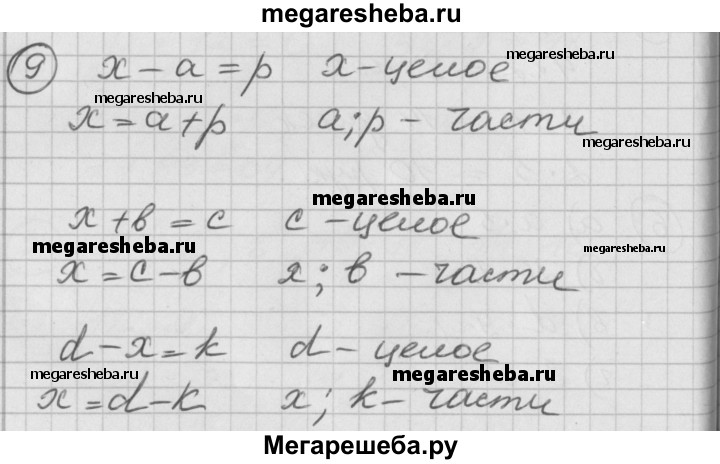 megaresheba.ru
9 x - a = p x - целое
megaresheba.ru
megaresheba.ru
x = a + p a; p - части
megaresheba.ru
megaresheba.ru
x + в = c c - целое
megaresheba.ru
megaresheba.ru
x = c - в x; в - части
d - x = k d - целое
megaresheba.ru
megaresheba.ru
x = d - k x; k - части
Мегарешеба.ру